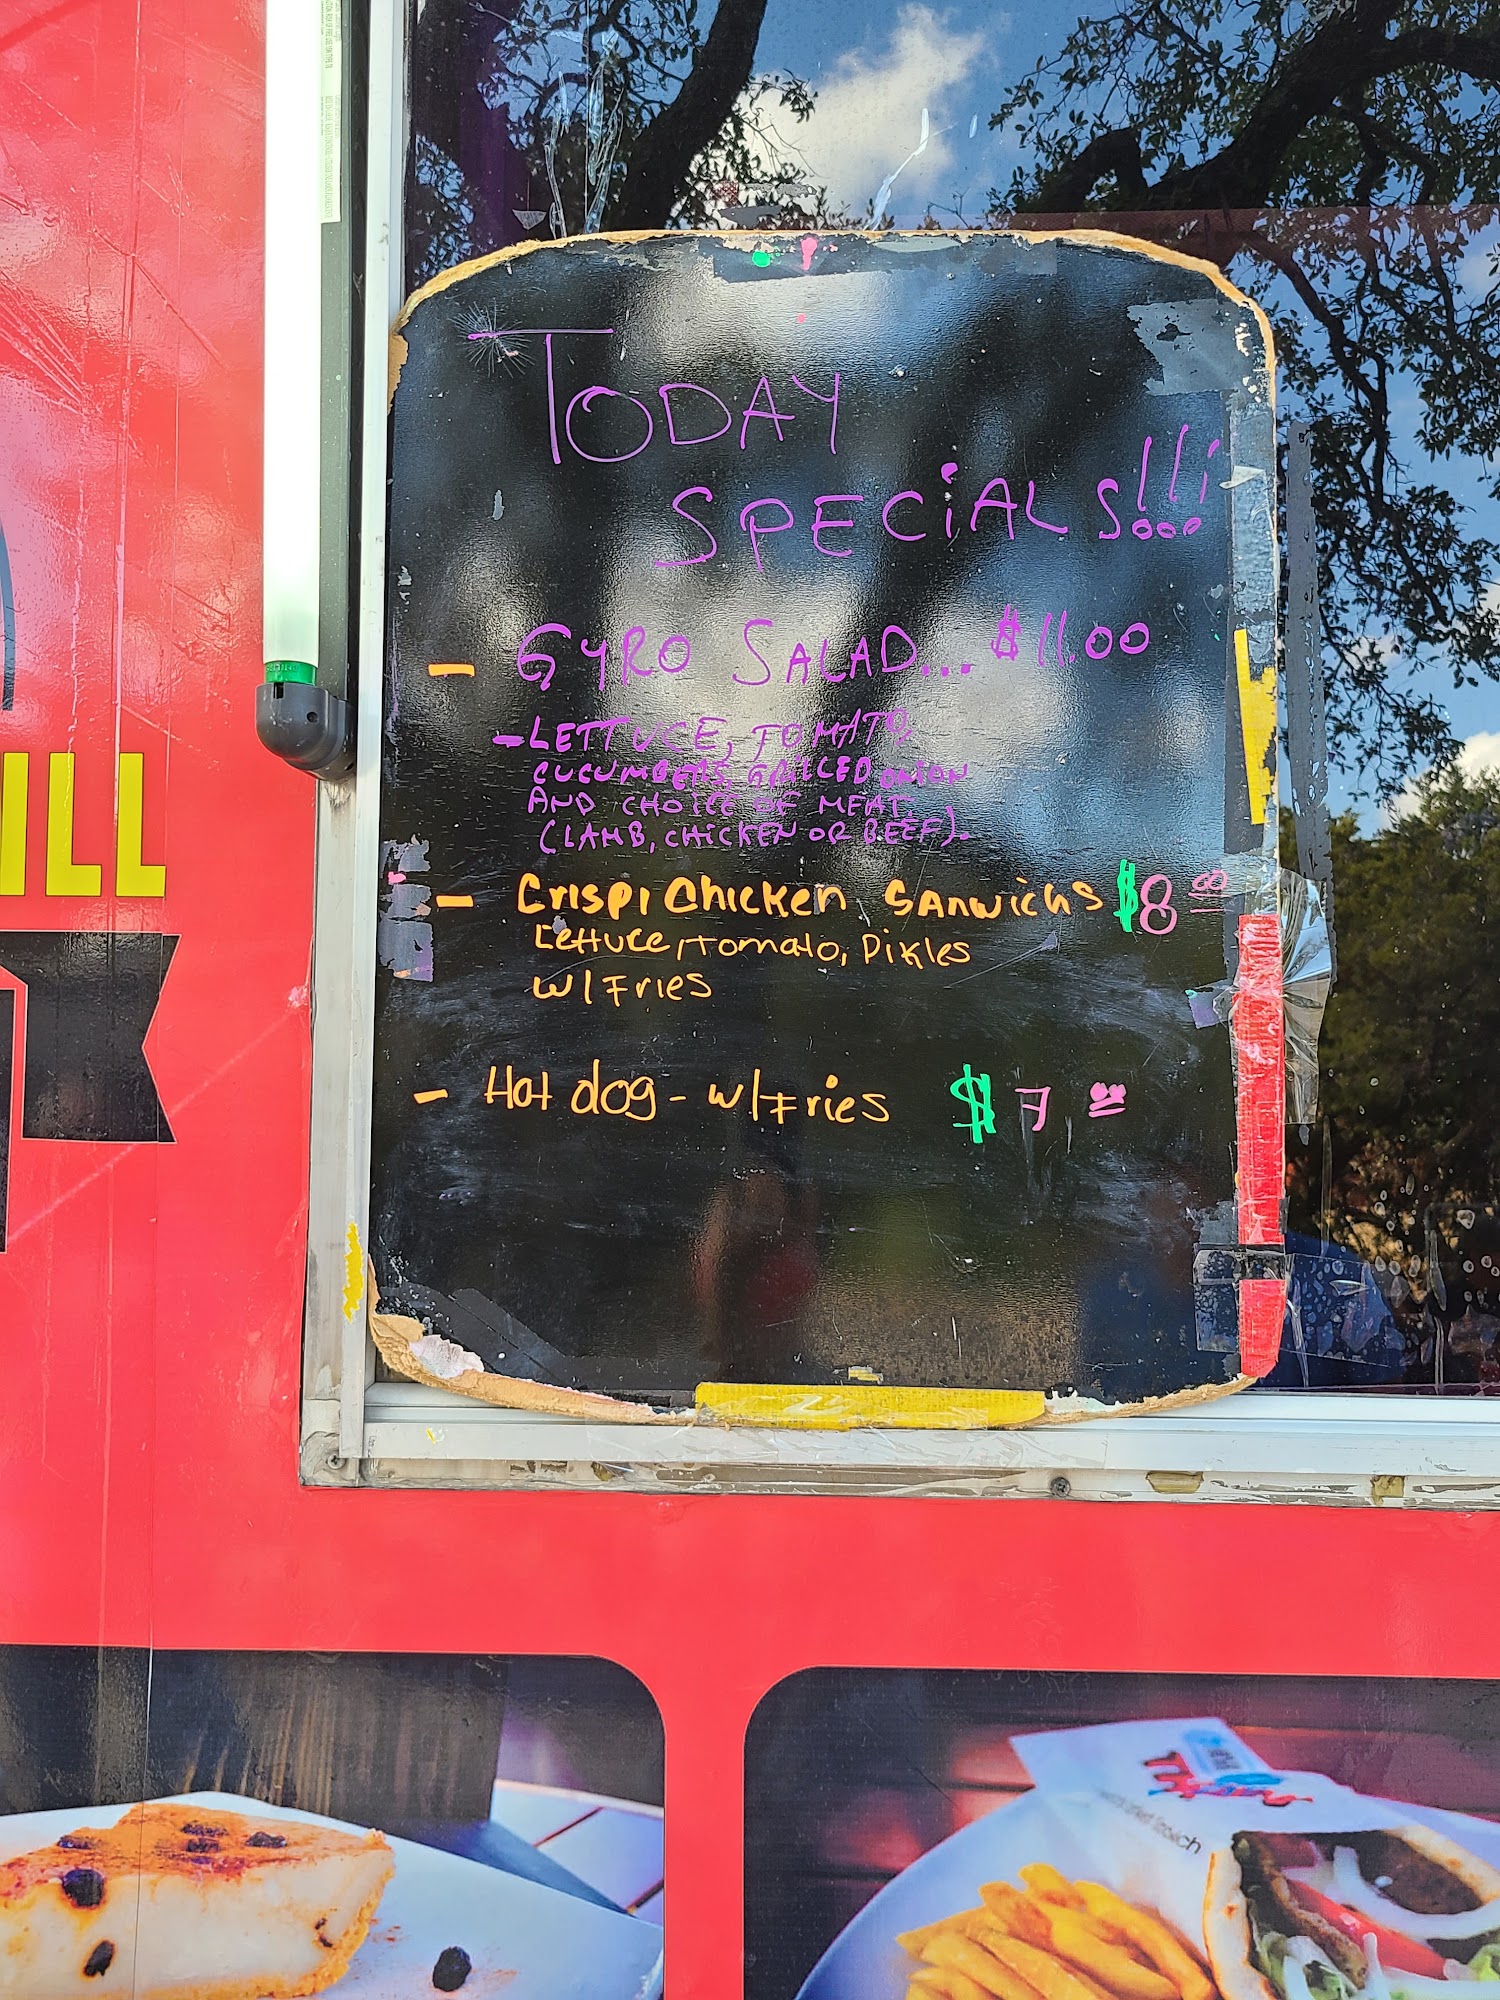 TODAY
SPECiALS!!!
- GYRO SALAD... $11.00
- LETTUCE, TOMATO,
CUCUMBERS, GRILLED ONION
AND CHOiCE OF MEAT
(LAMB, CHiCKEN OR BEEF).
- Crispi Chicken SAnwichs $8 00
Lettuce, Tomato, Pikles
w/Fries
- Hot dog - w/Fries $7 00
ILL